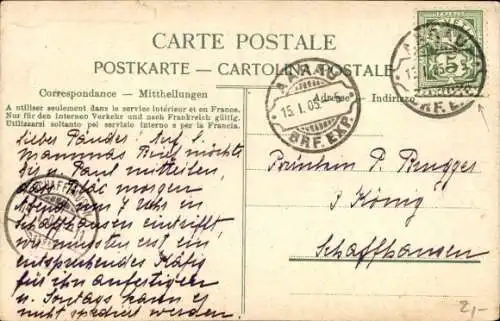 CARTE POSTALE
POSTKARTE — CARTOLINA POSTALE
Correspondance — Mittheilungen
Adresse — Indirizzo
A utiliser seulement dans le service intérieur et en France.
Nur für den Internen Verkehr und nach Frankreich gültig.
Utilizzarsi soltanto pel servizio interno e per la Francia.
AARAU
15.I.05.
BRF. EXP.
AARAU
15.I.05
BRF. EXP.
5
Lieber! Auf l.
Mammas Brief möchte
Dir u. Paul mitteilen,
dass morgen
Abend um 7 Uhr in
Schaffhausen eintrifft,
wir müssten erst ein
entsprechendes Käfig
für ihn anfertigen
u. Sontags kann es
nicht spediert werden.
Fräulein P. Brugger
z König
Schaffhausen
2,-